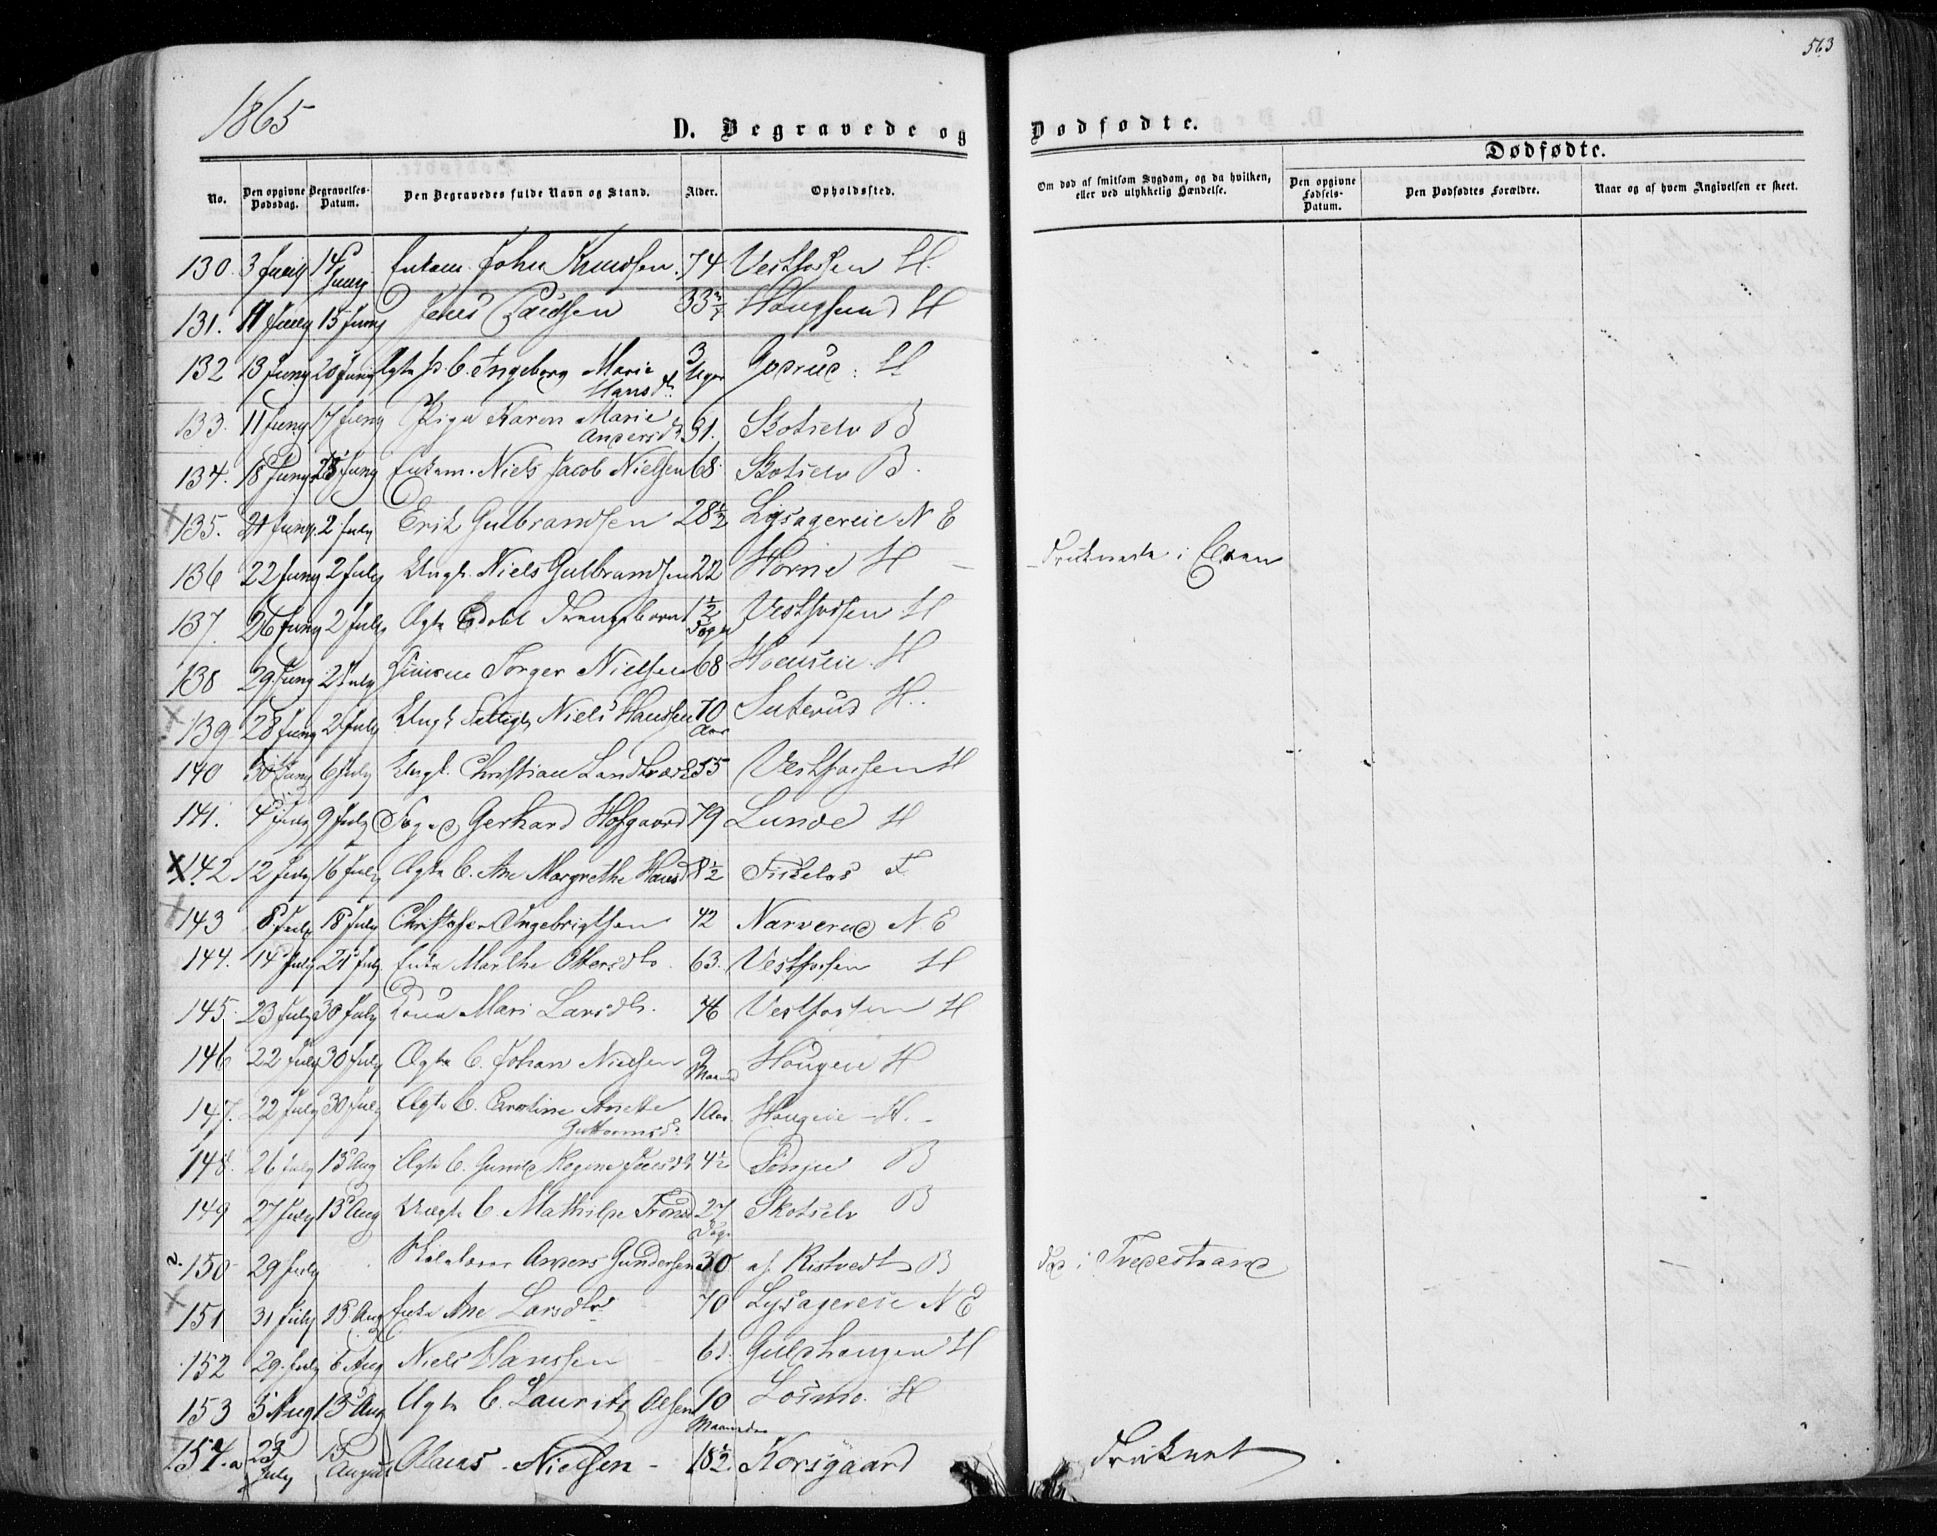 563
1865
D. Begravede og Dødfødte.
Dødfødte.
No.
Den opgivne Dødsdag.
Begravelses-Datum.
Den Begravedes fulde Navn og Stand.
Alder.
Opholdssted.
Om død af smitsom Sygdom, og da hvilken, eller ved ulykkelig Hændelse.
Den opgivne Fødsels-Datum.
Den Dødfødtes Forældre.
Naar og af hvem Angivelsen er skeet.
130. 3 Juny 14 Juny Enkem. John Knudsen. 74 Vestfossen H.
131. 11 Juny 15 Juny Jens 33 Hougsund H
132 13 Juny 20 Juny Ægte P. B. Ingeborg Marie Hansd. 3 Uger H
133. 11 Juny 17 Juny Pige Karen Marie Andersd. 31. Skotselv B
134. 18 Juny 25 Juny Enkem. Niels Jacob Nielsen 68 Skotselv B.
135. 21 Juny 2 July Erik Gulbrandsen 28½ Lysagereie N E
136 22 Juny 2 July Ungk. Niels Gulbrandsen 22 Horne H - Druknede i Elven
137. 26 Juny 2 July Ægte Drengebarn 1½ Dage Vestfossen H
138 29 Juny 2 July Torger Nielsen 68 Hoenseie H
139 28 Juny 2 July Ungk. Niels Hansen 70 Aar H.
140 30 Juny 6 July Ungk. Christian 55 Vestfossen H
141. 4 July 9 July Gerhard Hofgaard 79 Lunde H
142 12 July 16 July Ægte B. Ane Margrethe Hansd 8½ Fiskelos F.
143 8 July 18 July Christofer Ingebrigtsen 42 Narverud N E
144. 14 July 21 July Enke Marthe Ottersdtr. 63. Vestfossen H
145. 23 July 30 July Kone Mari Larsdtr. 76 Vestfossen H
146 22 July 30 July Ægte B. Johan Nielsen 9 Maaned Hougeie H
147. 22 July 30 July Ægte B. Caroline Anette Guttormsd. 1 Aar. Hougeie - H. -
148. 26 July 13 Aug Ægte B. Gunild Regine 4½ B
149 27 July 13 Aug Uægte B. Mathilde Tronsd 27 Dage Skotselv B
150 29 July Skolelærer Anders Gundersen 30 af Ristvedt B Død i Tvedestrand
151 31 July 13 Aug Enke Ane Larsdtr 70 Lysagereie N E
152 29 July 6 Aug Niels Hanssen Guldhougen H
153 5 Aug 13 Aug Ægte B. Lauritz Olsen 10 Maaneder Loesmo. H
154.a 23 July 13 August Olaus Nielsen - 18½. Korsgaard Druknet.